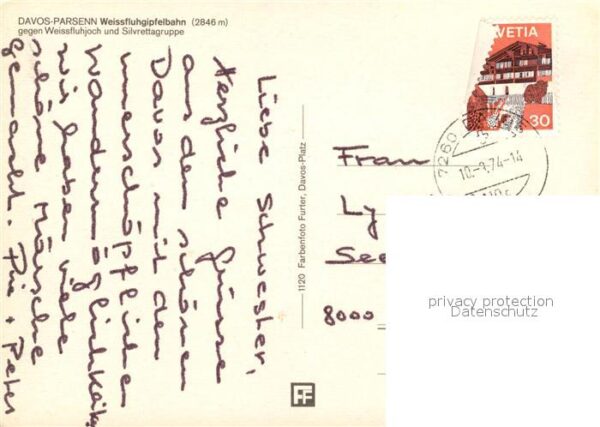 DAVOS-PARSENN Weissfluhgipfelbahn (2846 m)
gegen Weissfluhjoch und Silvrettagruppe
Liebe Schwester,
Herzliche Grüsse
aus dem schönen
Davos mit den
unerschöpflichen
Wandermöglichkeit
wir haben viele
schöne Märsche
gemacht. Pia + Peter
1120 Farbenfoto Furter, Davos-Platz
FF
HELVETIA
30
7260
10.-9.74-14
Frau
Ly
See
8000
privacy protection
Datenschutz